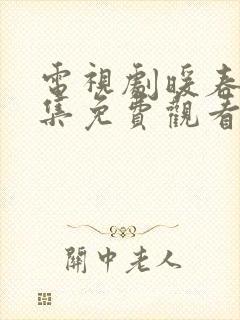 電視劇暖春
集免費觀看
關中老人